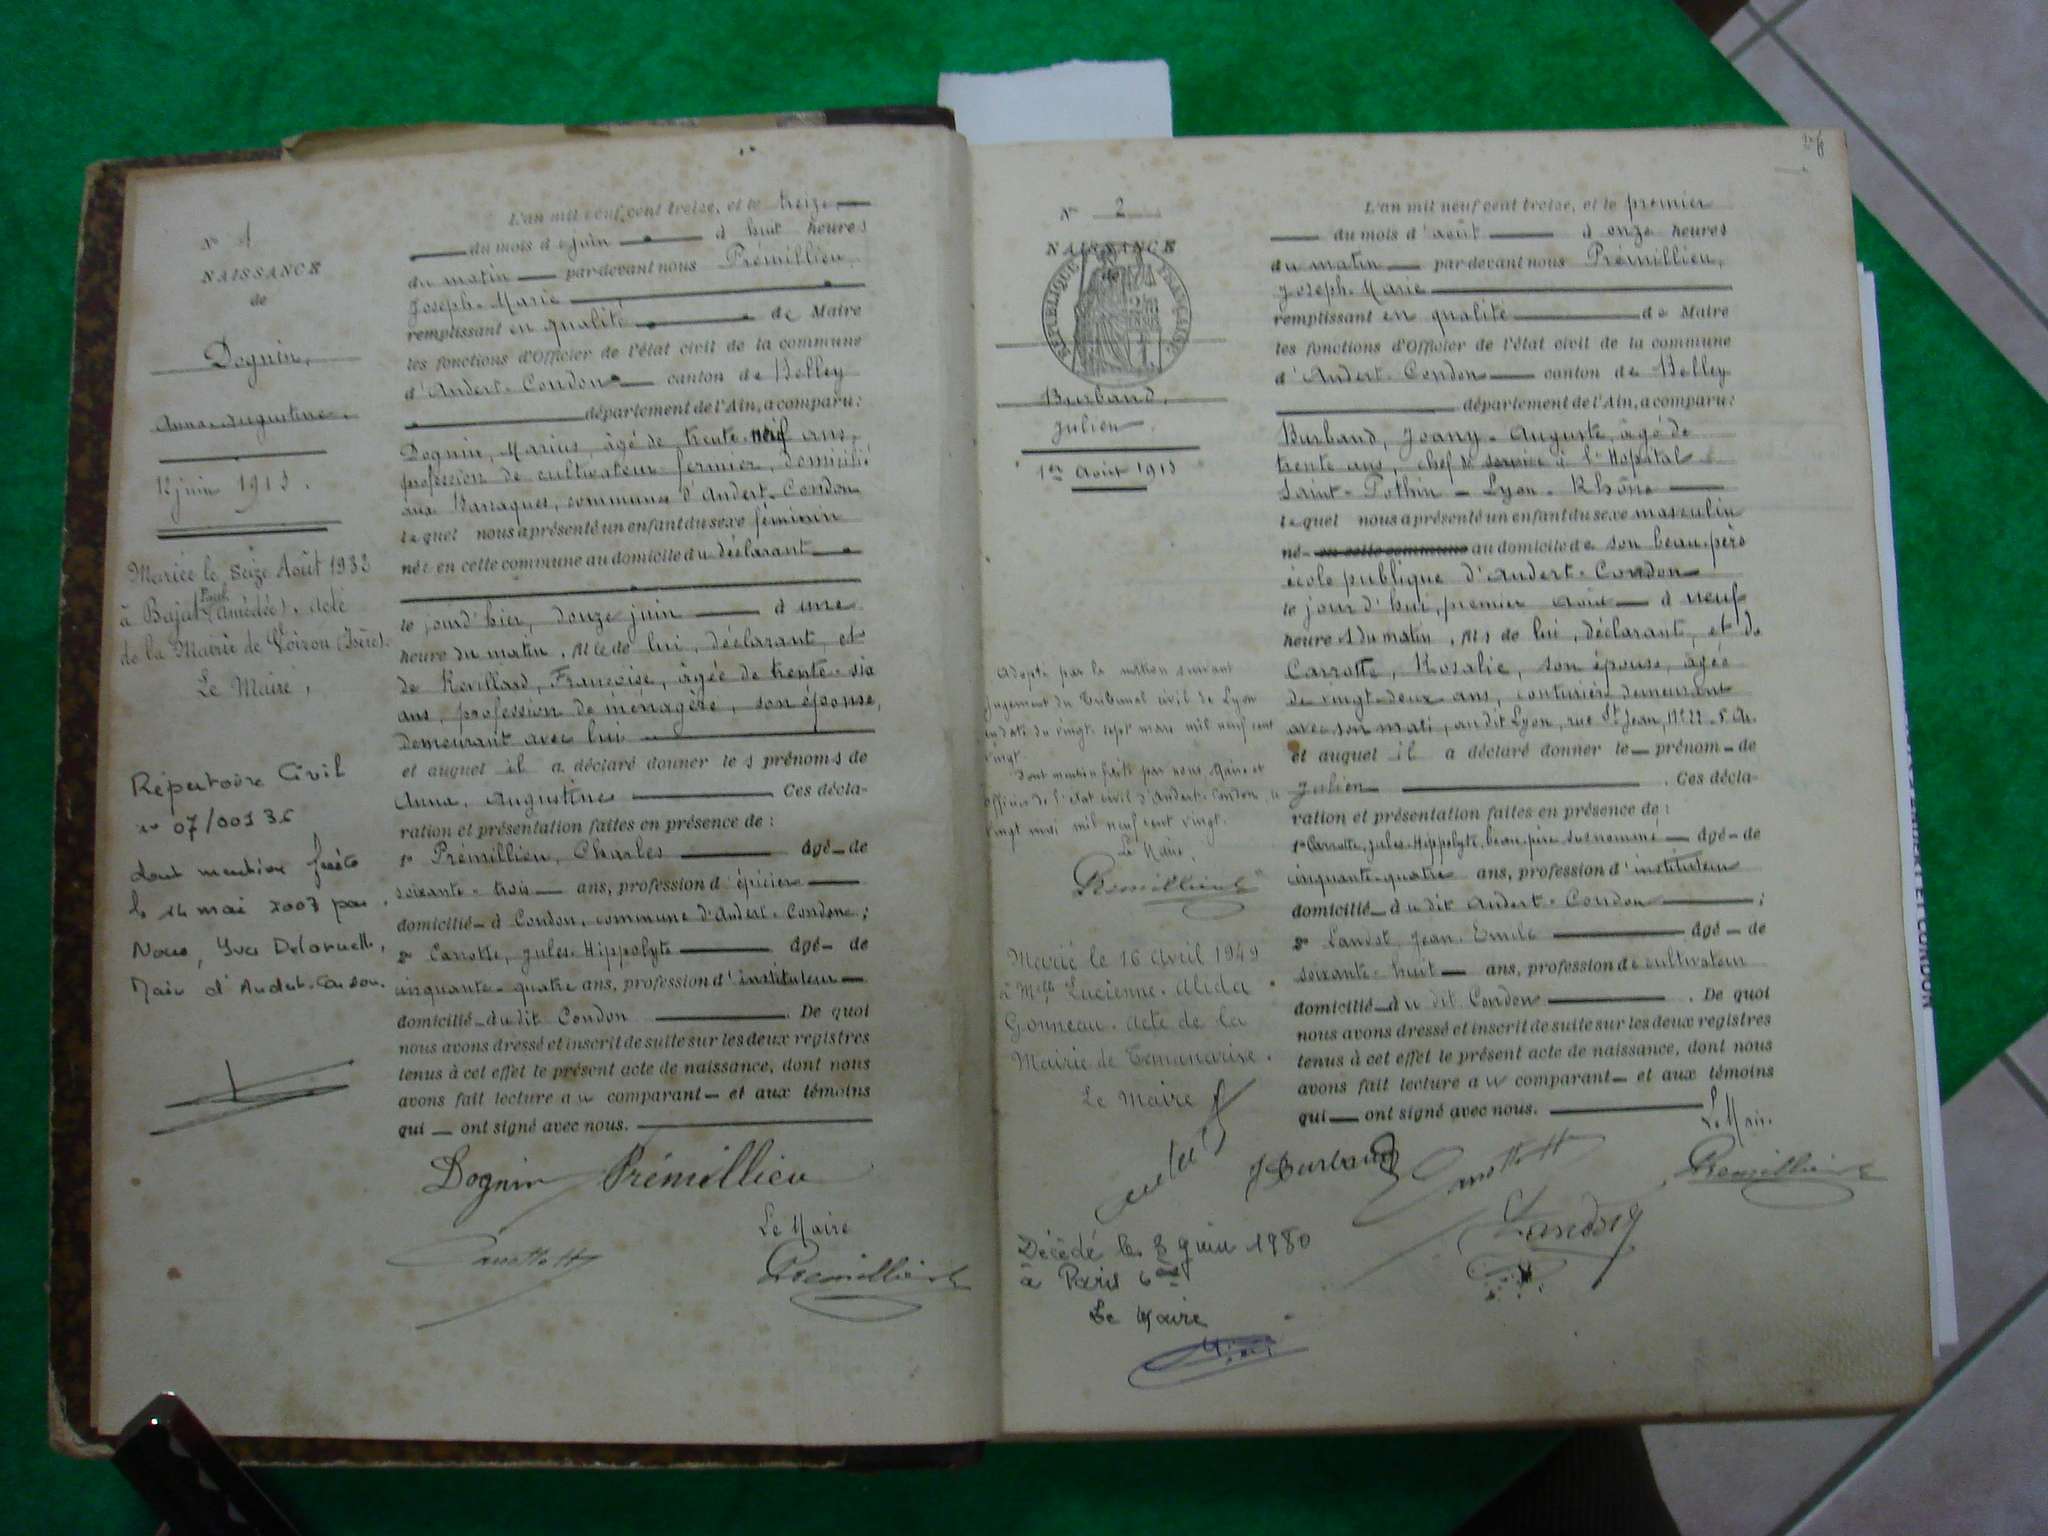 N° 1
NAISSANCE
de
Dognin,
Anna-Augustine.
12 juin 1913.
Mariée le seize Août 1933
à Bajat (Paul Amédée). acte
de la Mairie de Voiron (Isère).
Le Maire,
Répertoire Civil
n° 07/00136
dont mention faite
le 14 mai 2007 par
Nous, Yves Delaruelle,
Maire d'Andert-Condon.
L'an mil neuf cent treize, et le treize
du mois de juin à huit heures
du matin par-devant nous Prémillieu,
Joseph-Marie
remplissant en qualité de Maire
les fonctions d'Officier de l'état civil de la commune
d'Andert-Condon canton de Belley
département de l'Ain, a comparu :
Dognin, Marius, âgé de trente neuf ans,
profession de cultivateur fermier, domicilié
aux Barraques, commune d'Andert-Condon
lequel nous a présenté un enfant du sexe féminin
née en cette commune au domicile du déclarant
le jour d'hier, douze juin à une
heure du matin, fille de lui, déclarant, et
de Revillard, Françoise, âgée de trente-six
ans, profession de ménagère, son épouse,
demeurant avec lui
et auquel il a déclaré donner les prénoms de
Anna, Augustine Ces décla-
ration et présentation faites en présence de :
1° Prémillieu, Charles âgé de
soixante-trois ans, profession d'épicier
domicilié à Condon, commune d'Andert-Condon ;
2° Carrotte, Jules-Hippolyte âgé de
cinquante-quatre ans, profession d'instituteur
domicilié audit Condon. De quoi
nous avons dressé et inscrit de suite sur les deux registres
tenus à cet effet le présent acte de naissance, dont nous
avons fait lecture au comparant et aux témoins
qui ont signé avec nous.
Dognin Prémillieu
Le Maire
Carrotte Prémillieu
N° 2
NAISSANCE
de
RÉPUBLIQUE FRANÇAISE
Burland,
Julien.
1er Août 1913
Adopté par la nation suivant
jugement du Tribunal civil de Lyon
en date du vingt-sept mars mil neuf cent
vingt.
Dont mention faite par nous, Maire et
officier de l'état civil d'Andert-Condon, le
vingt mai mil neuf cent vingt.
Le Maire,
Prémillieu
Marié le 16 Avril 1949
à Melle Lucienne. Alida
Gonneau. acte de la
Mairie de Tananarive.
Le Maire
Décédé le 8 juin 1980
à Paris 6ème
Le Maire
L'an mil neuf cent treize, et le premier
du mois d'août à onze heures
du matin par-devant nous Prémillieu,
Joseph-Marie
remplissant en qualité de Maire
les fonctions d'Officier de l'état civil de la commune
d'Andert-Condon canton de Belley
département de l'Ain, a comparu :
Burland, Joany-Auguste, âgé de
trente ans, chef de service à l'Hopital
Saint-Pothin - Lyon - Rhône
lequel nous a présenté un enfant du sexe masculin
né en cette commune au domicile de son beau-père
école publique d'Andert-Condon
le jour d'hui, premier Août à neuf
heures du matin, fils de lui, déclarant, et de
Carrotte, Rosalie, son épouse, âgée
de vingt-deux ans, couturière demeurant
avec son mari, audit Lyon, rue St Jean, N° 22 - 5e Ar.
et auquel il a déclaré donner le prénom de
Julien . Ces décla-
ration et présentation faites en présence de :
1° Carrotte, Jules-Hippolyte, beau-père susnommé âgé de
cinquante-quatre ans, profession d'instituteur
domicilié audit Andert-Condon ;
2° Landot, Jean-Emile âgé de
soixante-huit ans, profession de cultivateur
domicilié audit Condon. De quoi
nous avons dressé et inscrit de suite sur les deux registres
tenus à cet effet le présent acte de naissance, dont nous
avons fait lecture au comparant et aux témoins
qui ont signé avec nous.
Le Maire.
J Burland Carrotte Prémillieu
Landot